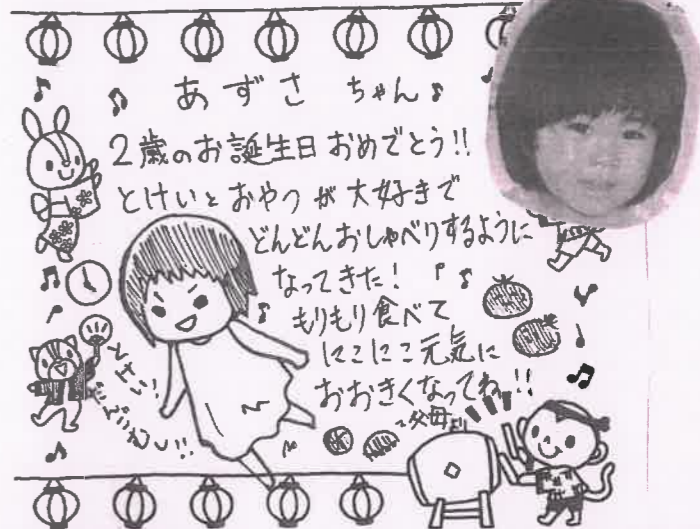 あずさ ちゃん
2歳のお誕生日 おめでとう!!
とけいと おやつ が 大好きで
どんどんおしゃべりするように
なってきた!
もりもり食べて
にこにこ元気に
おおきくなってね!!
父母より